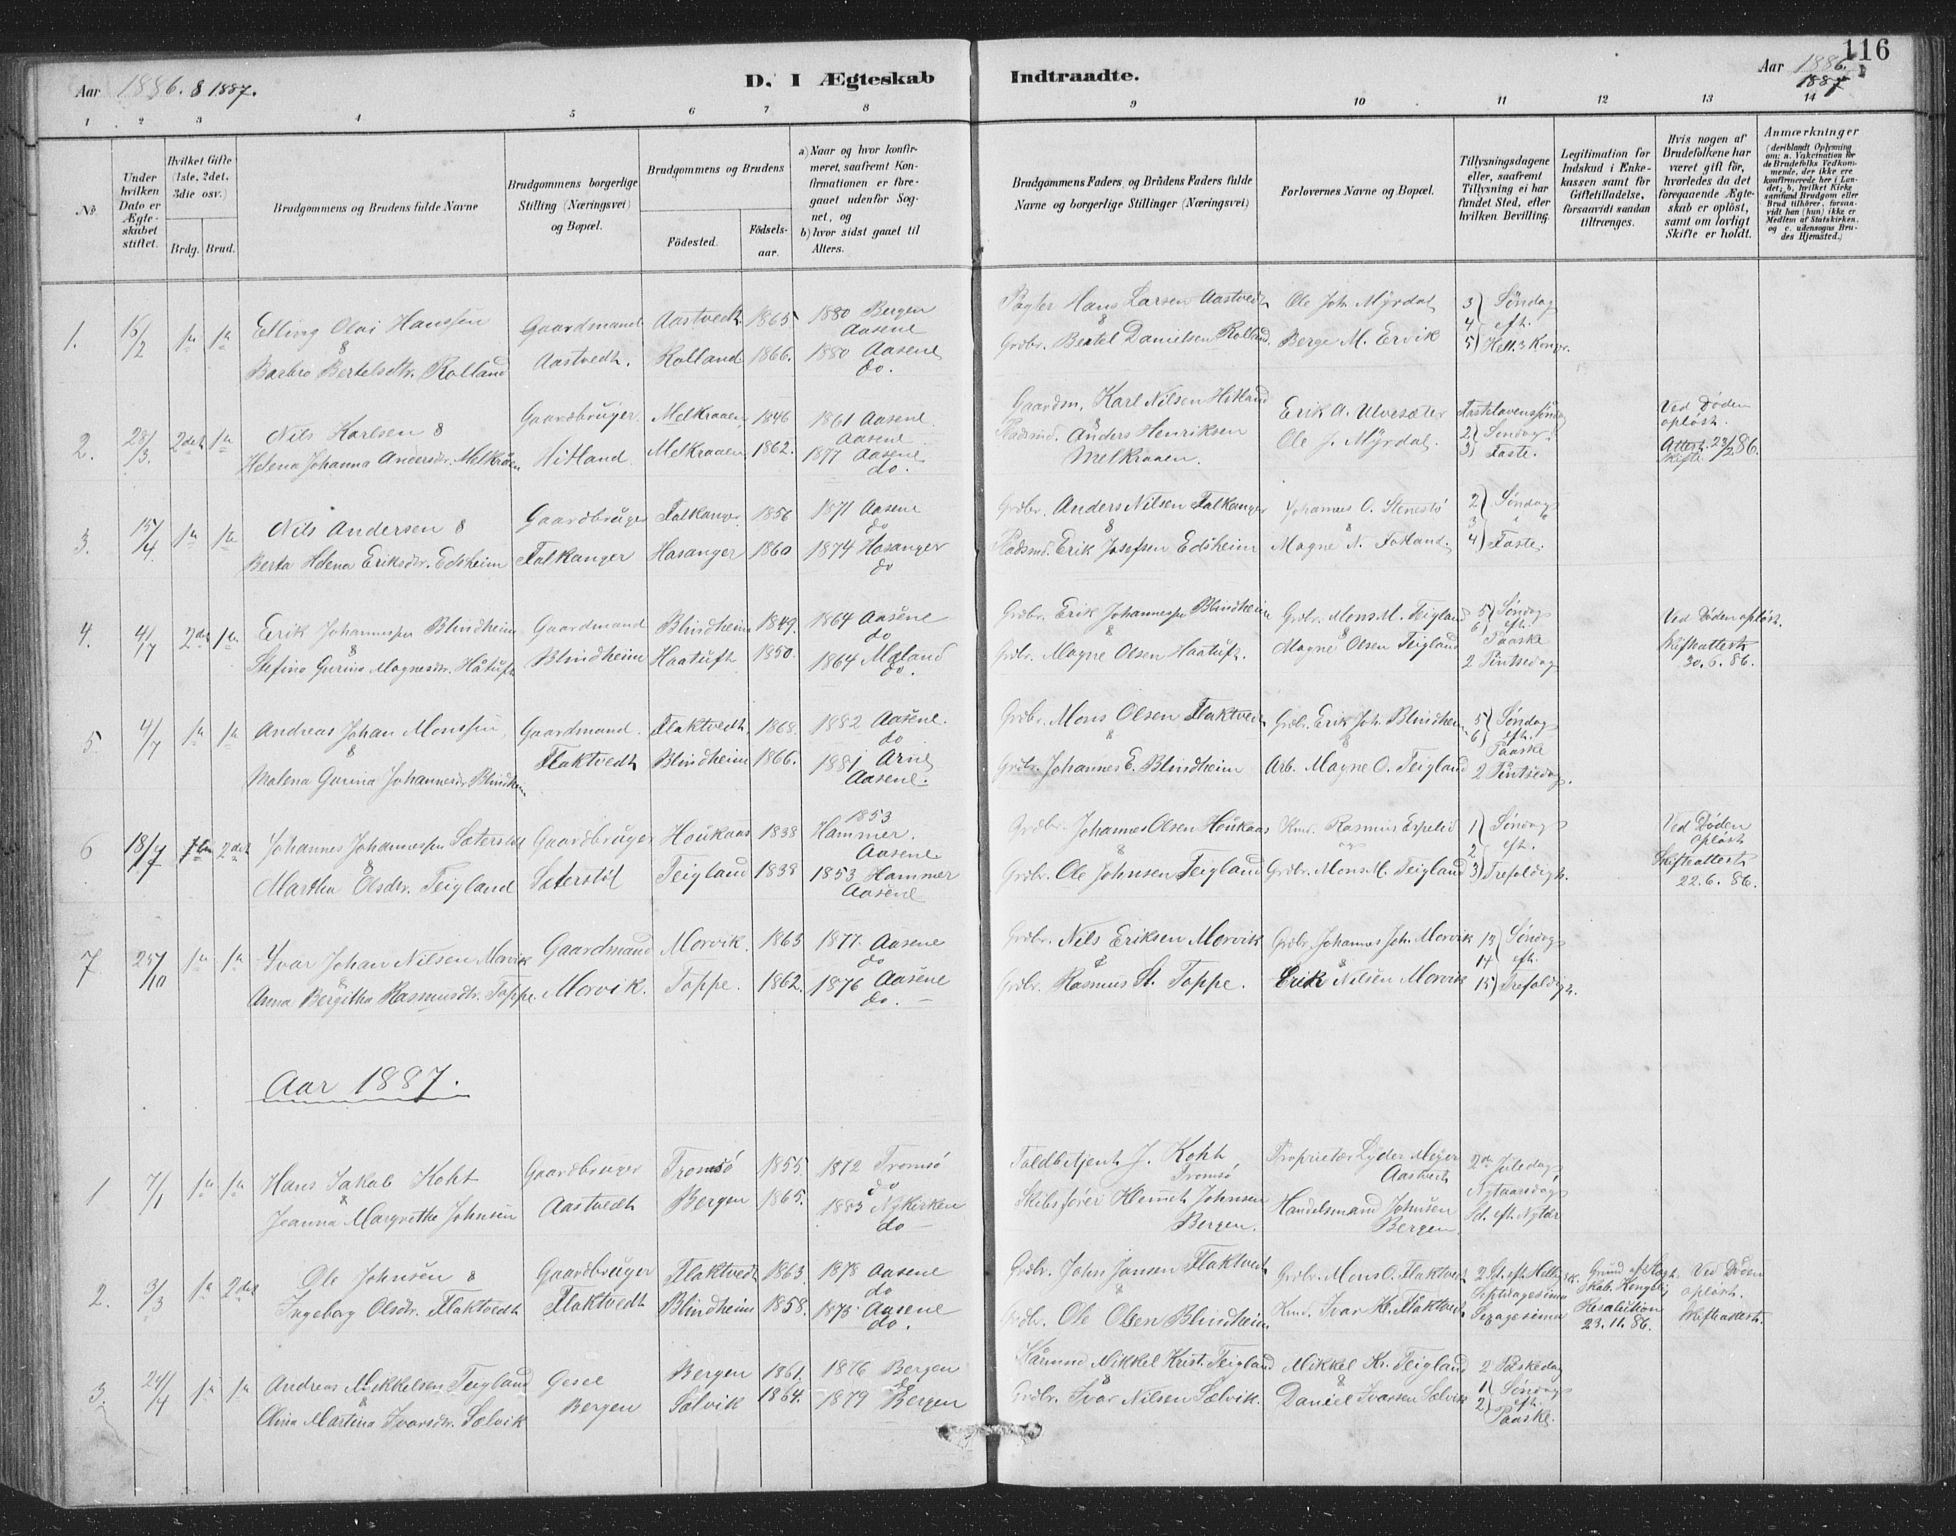 116
Aar 1886. & 1887.
D. I Ægteskab Indtraadte.
Aar 1886. & 1887
1 2 3 4 5 6 7 8 9 10 11 12 13 14
No.
Under hvilken Dato er Ægteskabet stiftet.
Hvilket Gifte (1ste, 2det, 3die osv.)
Brdg. Brud.
Brudgommens og Brudens fulde Navne
Brudgommens borgerlige Stilling (Næringsvei) og Bopæl.
Brudgommens og Brudens
Födested.
Födselsaar.
a) Naar og hvor konfirmeret, saafremt Konfirmationen er foregaaet udenfor Sognet, og
b) hvor sidst gaaet til Alters.
Brudgommens Faders og Brudens Faders fulde Navne og borgerlige Stillinger (Næringsvei)
Forlovernes Navne og Bopæl.
Tillysningsdagene eller, saafremt Tillysning ei har fundet Sted, efter hvilken Bevilling.
Legitimation for Indskud i Enkekassen samt for Giftetilladelse, forsaavidt saadan tiltrænges.
Hvis nogen af Brudefolkene har været gift för, hvorledes da det foregaaende Ægteskab er oplöst, samt om lovligt Skifte er holdt.
Anmærkninger (deriblandt Oplysning om: a. Vakcination for de Brudefolks Vedkommende, der ikke ere konfirmerede her i Landet; b. hvilket Kirkesamfund Brudgom eller Brud tilhörer, forsaavidt han (hun) ikke er Medlem af Statskirken, og c. udensogns Brudes Hjemsted.)
1. 16/2 1ste 1ste Elling Olai Hanssen Gaardmand Aastvedt 1865 1880 Bergen Aasene Hans Larsen Aastvedt Ole Joh. Myrdal 3 Söndag
& 4 eft.
Barbro Bertelsdtr. Rolland Aastvedt. Rolland 1866. 1880 Aasene do. Grdbr. Bertel Danielsen Rolland. Berge M. Ervik 5 Hell. 3 Konger.
2. 28/3. 2det 1ste Nils Karlsen & Gaardbruger Melkraaen 1846 1861 Aasene Aasene Gaardm. Karl Nilsen Hitland Erik A. Ulvesæter Fastelavenssöndag Ved Döden oplöst.
Helena Johanna Andersdr. Melkråen Hitland Melkraaen 1862. 1877 Aasene do. Pladsmd. Anders Henriksen Melkraaen. Ole J. Myrdal. 2 Söndag 3 Faste. Attest 23/3 86. Skifte
3. 15/4. 1ste 1ste Nils Andersen & Gaardbruger Falkanger 1856 1871 Aasene do Grdbr. Anders Nilsen Falkanger Johannes O. Stenestö 2 Söndag
& & 3 i
Berta Helena Eriksdr. Edsheim Falkanger Hosanger 1860 1874 Hosanger do Pladsmd. Erik Josefsen Edsheim Magne N. Totland. 4 Faste.
4. 4/7 2det 1ste Erik Johannessen Blindheim Gaardmand Blindheim 1849. 1864 Aasene do Grdbr. Erik Johannessen Blindheim Grdbr. Mons M. Teigland 5 Söndag 6 eft. Paaske Ved Döden oplöst.
& & &
Stefina Gurina Magnesdr. Håtuft Blindheim Haatuft 1850. 1864 Mæland do. Grdbr. Magne Olsen Haatuft. Magne Olsen Teigland 2 Pintsedag Skifteattest 30.6.86.
5 4/7 1ste 1ste Andreas Johan Monssen, Gaardmand. Flaktvedt 1868. 1882 Aasene. do Grdbr. Mons Olsen Flaktvedt Grdbr. Erik Joh. Blindheim 5 Söndag 6 eft. Paaske
& & &
Malena Gurina Johannesdr. Blindheim Flaktvedt Blindheim 1866. 1881 Arne Aasene. Grdbr. Johannes E. Blindheim Arb. Magne O. Teigland 2 Pintsedag.
6 18/7 1ste 2det Johannes Johannessen Sæterstöl Gaardbruger Houkaas 1838 1853 Hammer. Aasene Grdbr. Johannes Olsen Houkaas Kmd. Rasmus Espelid 1 Söndag Ved Döden oplöst
& & og 2 eft.
Martha Olsdr. Teigland Sæterstöl Teigland 1838 1853 Hammer Aasene Grdbr. Ole Johnsen Teigland Grdbr. Mons M. Teigland 3 Trefoldigh. Skifteattest 22.6.86.
7 25/10 1ste 1ste Ivar Johan Nilsen Morvik Gaardmand Morvik. 1863 1877. Aasene do Grdbr. Nils Eriksen Morvik Grdbr. Johannes Joh. Morvik 13 Söndag
& & 14 eft.
Anna Bergitha Rasmusdtr. Toppe Morvik. Toppe. 1862. 1876 Aasene do. Grdbr. Rasmus St. Toppe. Erik Nilsen Morvik 15 Trefoldigh.
Aar 1887.
1 7/1 1ste 1ste Hans Jakob Koht Gaardbruger Tromsö 1855 1872 Tromsö do Toldbetjent J. Koht Tromsö Proprietær Lyder Meyer Aastvedt 2den Juledag
&
Jeanna Margrethe Johnsen Aastvedt Bergen 1865. 1883 Nykirken do Skibsförer Johnsen Bergen. Handelsmand Johnsen Bergen Nytaarsdag Sd. eft. Nytår
2. 3/3 1ste 2det Ole Johnsen & Gaardbruger Flaktvedt 1863. 1878 Aasene do Grdbr. John Jansen Flaktvedt Grdbr. Mons O. Flaktvedt 2 Sd. eft. Hell. 3 K. Grund Kongelig Ved Döden oplöst.
Ingeborg Olsdr. Flaktvedt Flaktvedt Blindheim 1858. 1873 Aasene do. Grdbr. Ole Olsen Blindheim Kmd. Ivar H. Flaktvedt Septuagesima Sexagesima Resolution 23.11.86. Skifteattest.
3. 24/4 1ste 1ste Andreas Mikkelsen Teigland Gesel Bergen 1861. 1876 Bergen do Kårmnd Mikkel Krist. Teigland Mikkel Kr. Teigland 2 Påskedag
& & &
Olina Martina Ivarsdr. Sælvik Bergen Sælvik 1864. 1879 Bergen Grdbr. Ivar Nilsen Sælvik. Daniel Ivarsen Sælvik 1 Söndag 2 eft. Paaske.